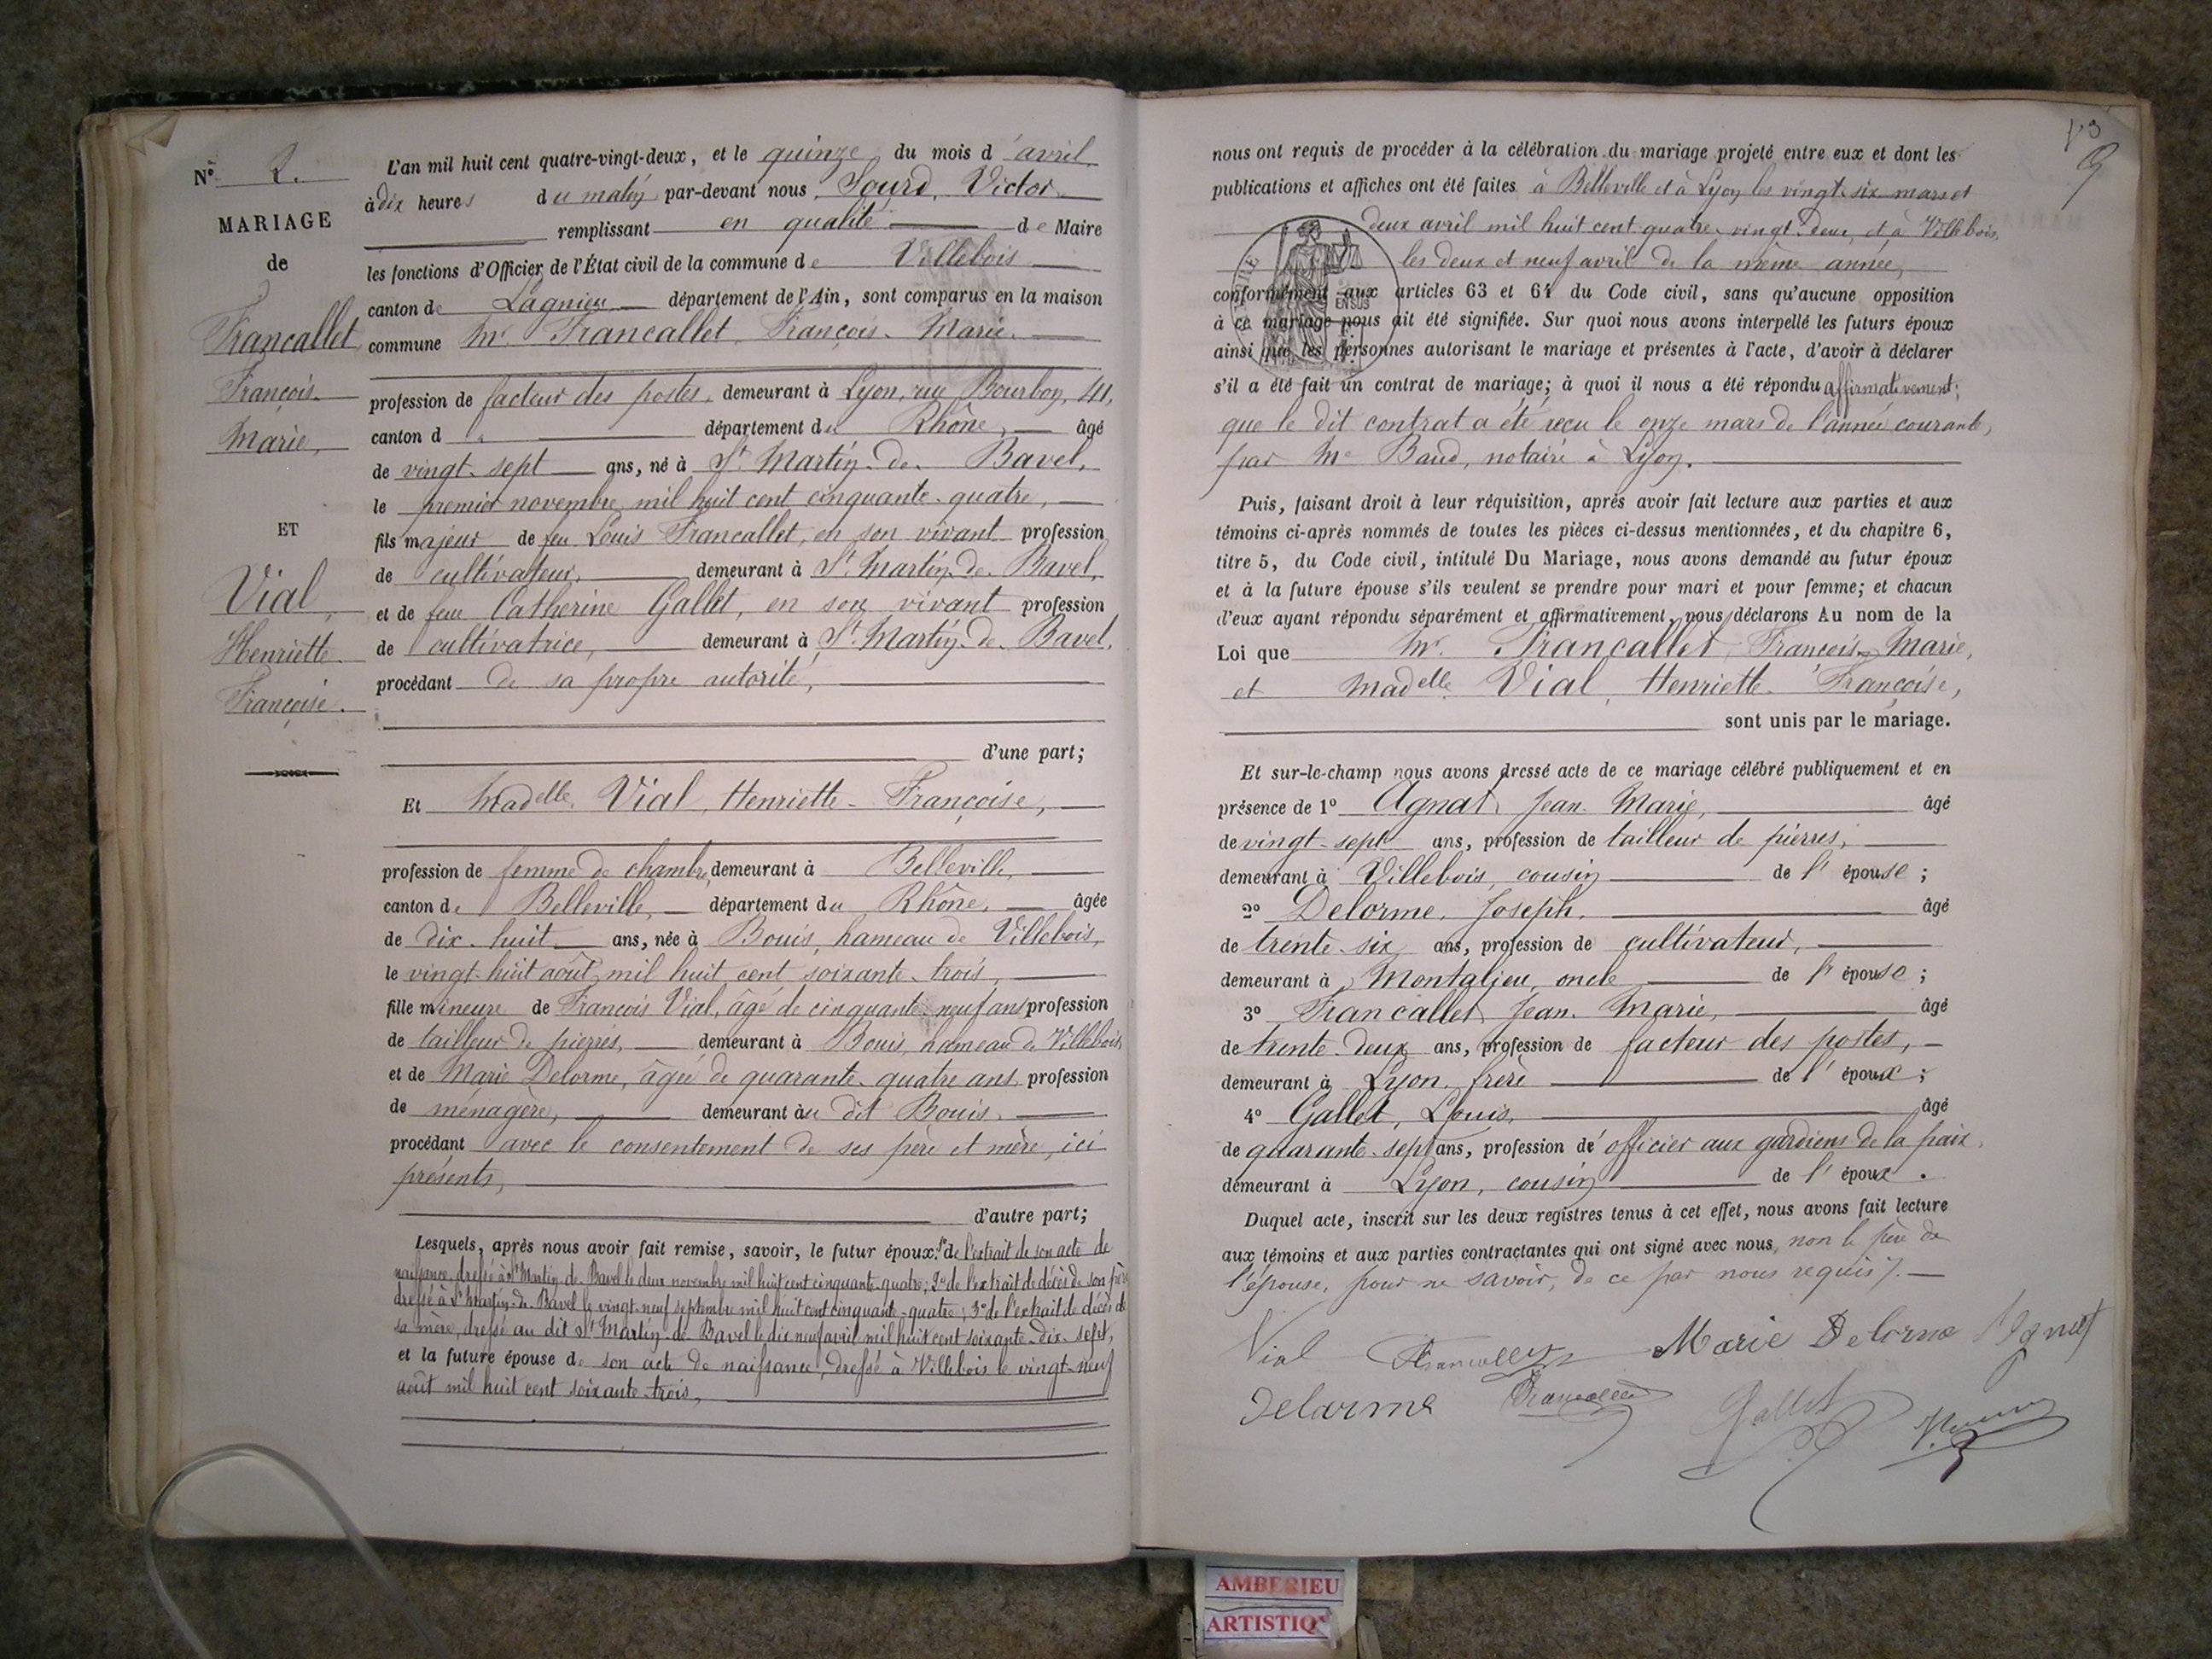 N° 2.
MARIAGE
de
Francallet
François
Marie,
ET
Vial,
Henriette
Françoise.
L'an mil huit cent quatre-vingt-deux, et le quinze du mois d'avril
à dix heures du matin par-devant nous Sourd, Victor
remplissant en qualité de Maire
les fonctions d'Officier de l'État civil de la commune de Villebois
canton de Lagnieu département de l'Ain, sont comparus en la maison
commune Mr Francallet, François-Marie.
profession de facteur des postes, demeurant à Lyon, rue Bourbon, 41,
canton d département du Rhône, âgé
de vingt-sept ans, né à St Martin-de-Bavel,
le premier novembre mil huit cent cinquante-quatre,
fils majeur de feu Louis Francallet, en son vivant profession
de cultivateur, demeurant à St Martin-de-Bavel,
et de feue Catherine Gallet, en son vivant profession
de cultivatrice, demeurant à St Martin-de-Bavel,
procédant de sa propre autorité,
d'une part;
Et Madelle Vial, Henriette-Françoise,
profession de femme de chambre, demeurant à Belleville,
canton de Belleville, département du Rhône, âgée
de dix-huit ans, née à Bouis, hameau de Villebois,
le vingt-huit août mil huit cent soixante-trois,
fille mineure de François Vial, âgé de cinquante-neuf ans profession
de tailleur de pierres, demeurant à Bouis, hameau de Villebois
et de Marie Delorme, âgée de quarante-quatre ans profession
de ménagère, demeurant au dit Bouis.
procédant avec le consentement de ses père et mère, ici
présents,
d'autre part;
Lesquels, après nous avoir fait remise, savoir, le futur époux: 1° de l'extrait de son acte de
naissance, dressé à St Martin-de-Bavel le deux novembre mil huit cent cinquante-quatre; 2° de l'extrait de décès de son père
dressé à St Martin-de-Bavel le vingt-neuf septembre mil huit cent cinquante-quatre; 3° de l'extrait de décès de
sa mère, dressé au dit St Martin-de-Bavel le dix neuf avril mil huit cent soixante-dix-sept,
et la future épouse de son acte de naissance, dressé à Villebois le vingt-neuf
août mil huit cent soixante-trois,
9
nous ont requis de procéder à la célébration du mariage projeté entre eux et dont les
publications et affiches ont été faites à Belleville et à Lyon les vingt-six mars et
deux avril mil huit cent quatre-vingt-deux, et à Villebois,
les deux et neuf avril de la même année,
conformément aux articles 63 et 64 du Code civil, sans qu'aucune opposition
à ce mariage nous ait été signifiée. Sur quoi nous avons interpellé les futurs époux
ainsi que les personnes autorisant le mariage et présentes à l'acte, d'avoir à déclarer
s'il a été fait un contrat de mariage; à quoi il nous a été répondu affirmativement;
que le dit contrat a été reçu le onze mars de l'année courante,
par Me Baud, notaire à Lyon.
Puis, faisant droit à leur réquisition, après avoir fait lecture aux parties et aux
témoins ci-après nommés de toutes les pièces ci-dessus mentionnées, et du chapitre 6,
titre 5, du Code civil, intitulé Du Mariage, nous avons demandé au futur époux
et à la future épouse s'ils veulent se prendre pour mari et pour femme; et chacun
d'eux ayant répondu séparément et affirmativement, nous déclarons Au nom de la
Loi que Mr. Francallet, François-Marie,
et Madelle Vial, Henriette-Françoise,
sont unis par le mariage.
Et sur-le-champ nous avons dressé acte de ce mariage célébré publiquement et en
présence de 1° Agnat, Jean-Marie, âgé
de vingt-sept ans, profession de tailleur de pierres,
demeurant à Villebois, cousin de l'épouse;
2° Delorme, Joseph, âgé
de trente-six ans, profession de cultivateur,
demeurant à Montalieu, oncle de l'épouse;
3° Francallet, Jean-Marie, âgé
de trente-deux ans, profession de facteur des postes,
demeurant à Lyon, frère de l'époux;
4° Gallet, Louis, âgé
de quarante-sept ans, profession d'officier aux gardiens de la paix,
demeurant à Lyon, cousin de l'époux.
Duquel acte, inscrit sur les deux registres tenus à cet effet, nous avons fait lecture
aux témoins et aux parties contractantes qui ont signé avec nous, non le père de
l'épouse, pour ne savoir, de ce par nous requis.
Vial Francallet Marie Delorme Agnat
Delarme Francallet Gallet
AMBERIEU
ARTISTIQ